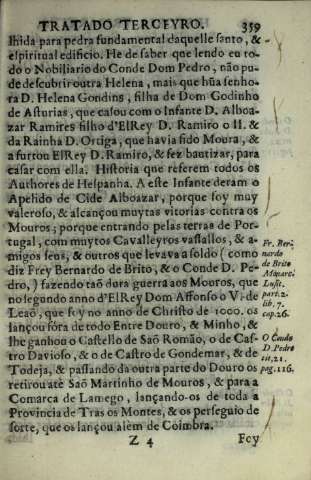 TRATADO TERCEYRO. 359
lhida para pedra fundamental daquelle santo, &
espiritual edificio. He de saber que lendo eu to-
do o Nobiliario do Conde Dom Pedro, não pu-
de descubrir outra Helena, mais que hũa senho-
ra D. Helena Gondins, filha de Dom Godinho
de Asturias, que casou com o Infante D. Alboa-
zar Ramires filho d'ElRey D. Ramiro o II. &
da Rainha D. Ortiga, que havia sido Moura, &
a furtou ElRey D. Ramiro, & fez bautizar, para
casar com ella. Historia que referem todos os
Authores de Hespanha. A este Infante deram o
Apelido de Cide Alboazar, porque foy muy
valeroso, & alcançou muytas vitorias contra os
Mouros; porque entrando pelas terras de Por-
tugal, com muytos Cavalleyros vassallos, & a-
migos seus, & outros que levava a soldo (como
diz Frey Bernardo de Brito, & o Conde D. Pe-
dro,) fazendo taõ dura guerra aos Mouros, que
no segundo anno d'ElRey Dom Affonso o V. de
Leaõ, que foy no anno de Christo de 1000. os
lançou fóra de todo Entre Douro, & Minho, &
lhe ganhou o Castello de Saõ Romão, o de Cas-
tro Davioso, & o de Castro de Gondemar, & de
Todeja, & passando da outra parte do Douro os
retirou atè Saõ Martinho de Mouros, & para a
Comarca de Lamego, lançando-os de toda a
Provincia de Tras os Montes, & os perseguio de
sorte, que os lançou alèm de Coimbra.
Z 4 Foy
Fr. Ber-
nardo
de Brito
Monarc.
Lusit.
part. 2.
lib. 7.
cap. 26.
O Conde
D. Pedro
tit. 21.
pag. 116.